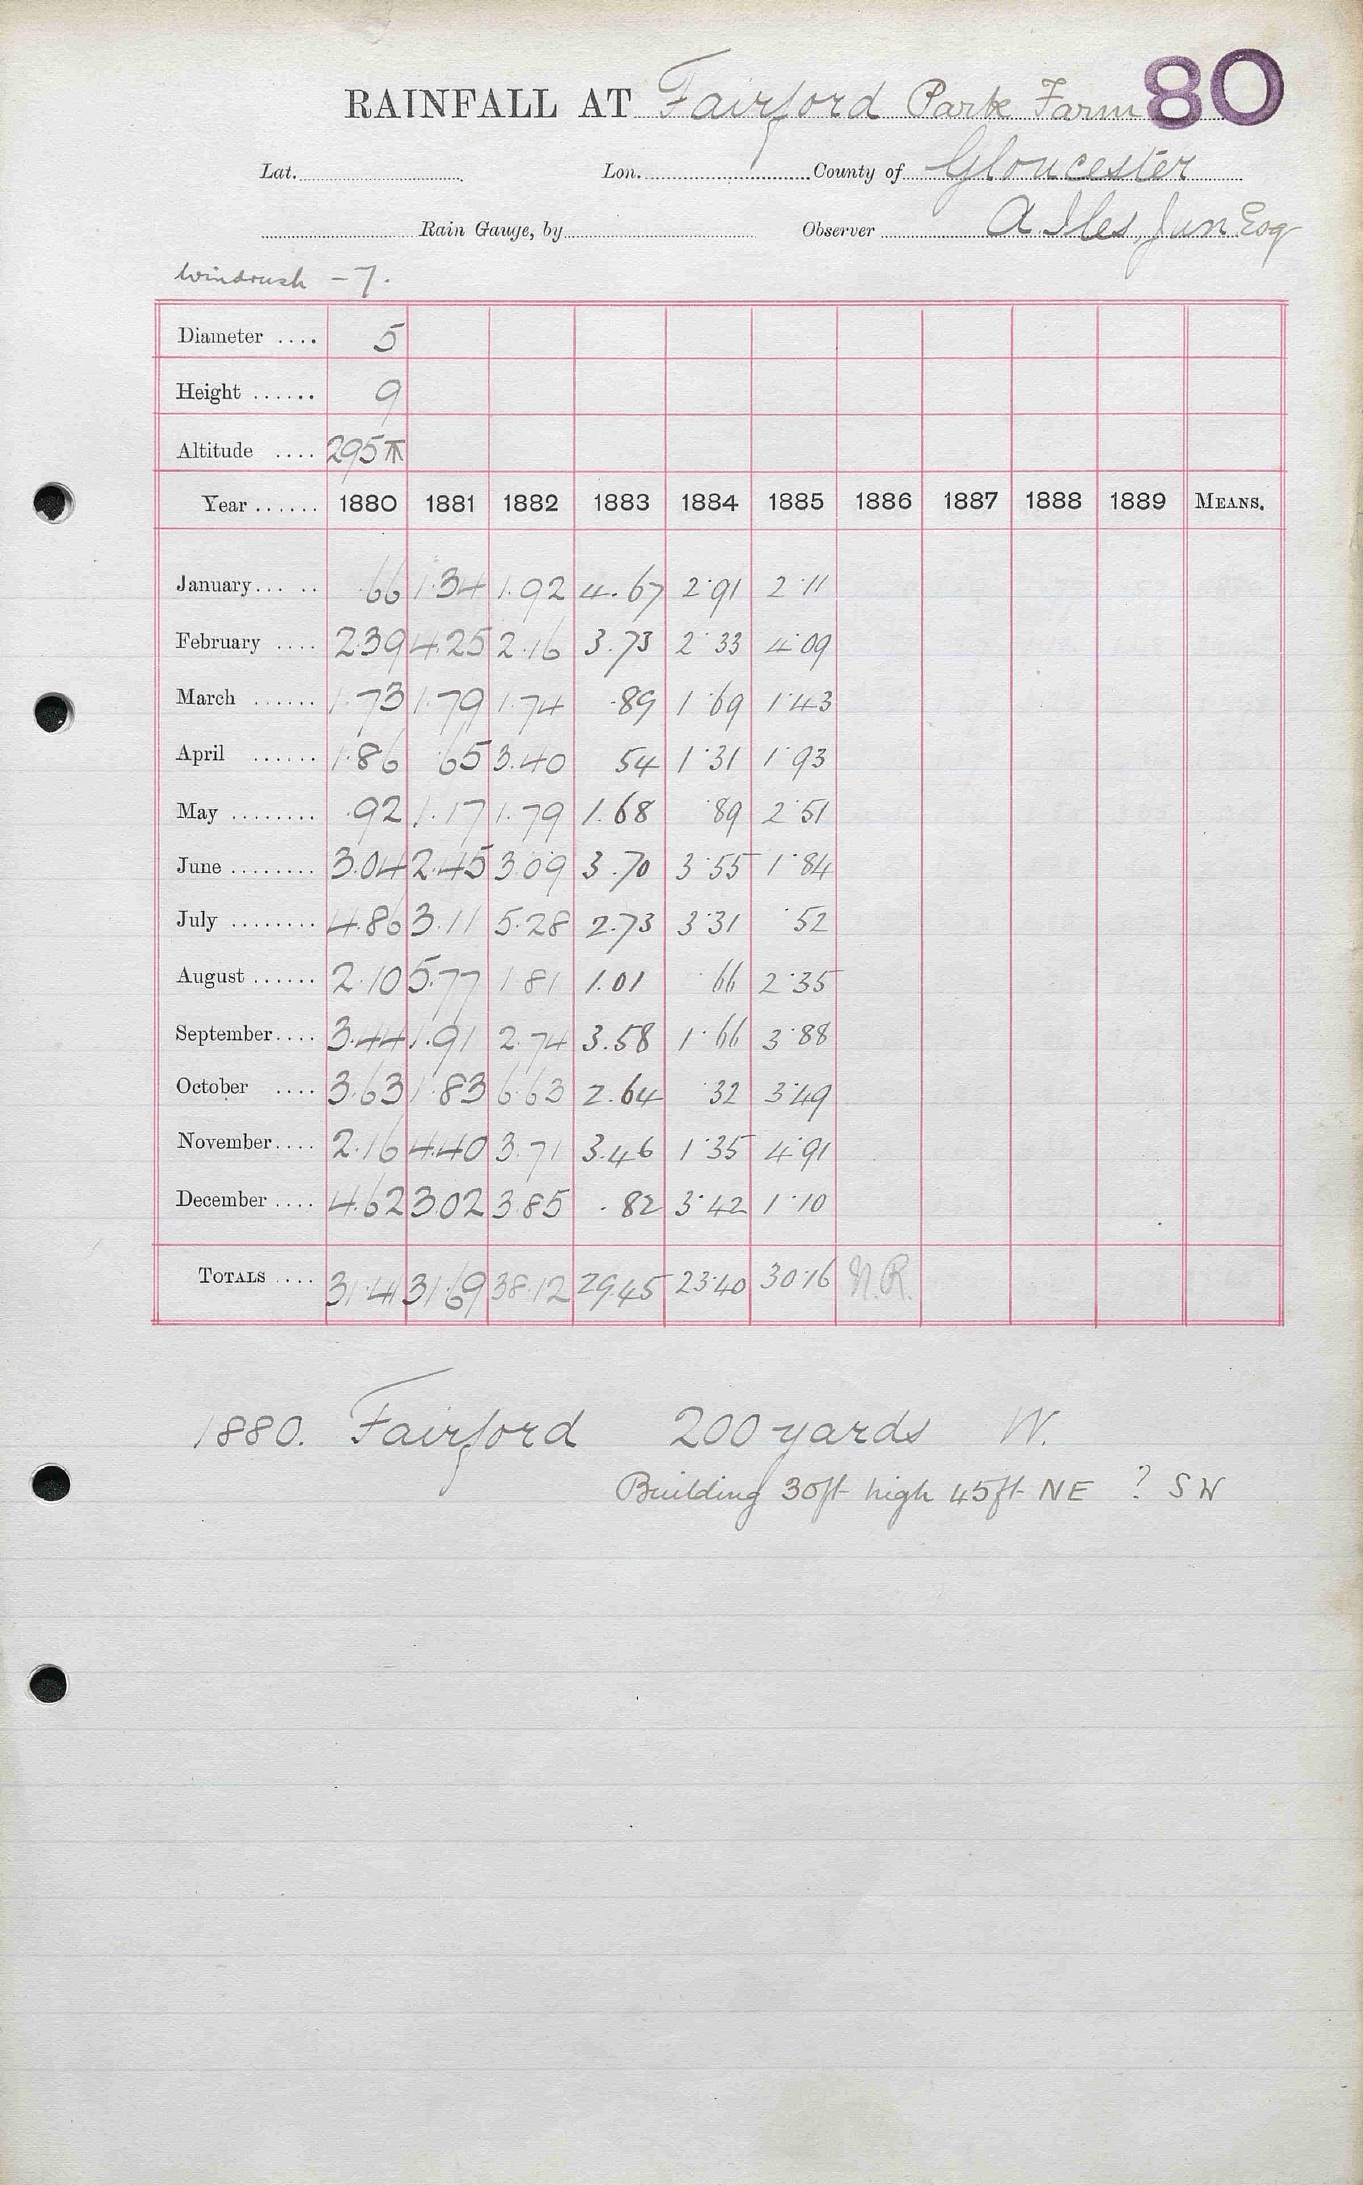 RAINFALL AT Fairford Park Farm 80
Lat. Lon. County of Gloucester
Rain Gauge, by Observer A. Iles, Jun Esq
Windrush - 7.
Diameter .... 5
Height ...... 9
Altitude .... 295
Year ...... 1880 1881 1882 1883 1884 1885 1886 1887 1888 1889 MEANS.
January... .. .66 1.34 1.92 4.67 2.91 2.11
February .... 2.39 4.25 2.16 3.73 2.33 4.09
March ...... 1.73 1.79 1.74 .89 1.69 1.43
April ...... 1.86 .65 3.40 54 1.31 1.93
May ........ .92 1.17 1.79 1.68 .89 2.51
June ........ 3.04 2.45 3.09 3.70 3.55 1.84
July ........ 4.86 3.11 5.28 2.73 3.31 .52
August ...... 2.10 5.77 1.81 1.01 .66 2.35
September.... 3.44 1.91 2.74 3.58 1.66 3.88
October .... 3.63 1.83 6.63 2.64 .32 3.49
November.... 2.16 4.40 3.71 3.46 1.35 4.91
December .... 4.62 3.02 3.85 .82 3.42 1.10
TOTALS .... 31.41 31.69 38.12 29.45 23.40 30.16 N.R.
1880. Fairford 200 yards W.
Building 30ft high 45ft NE ? SW